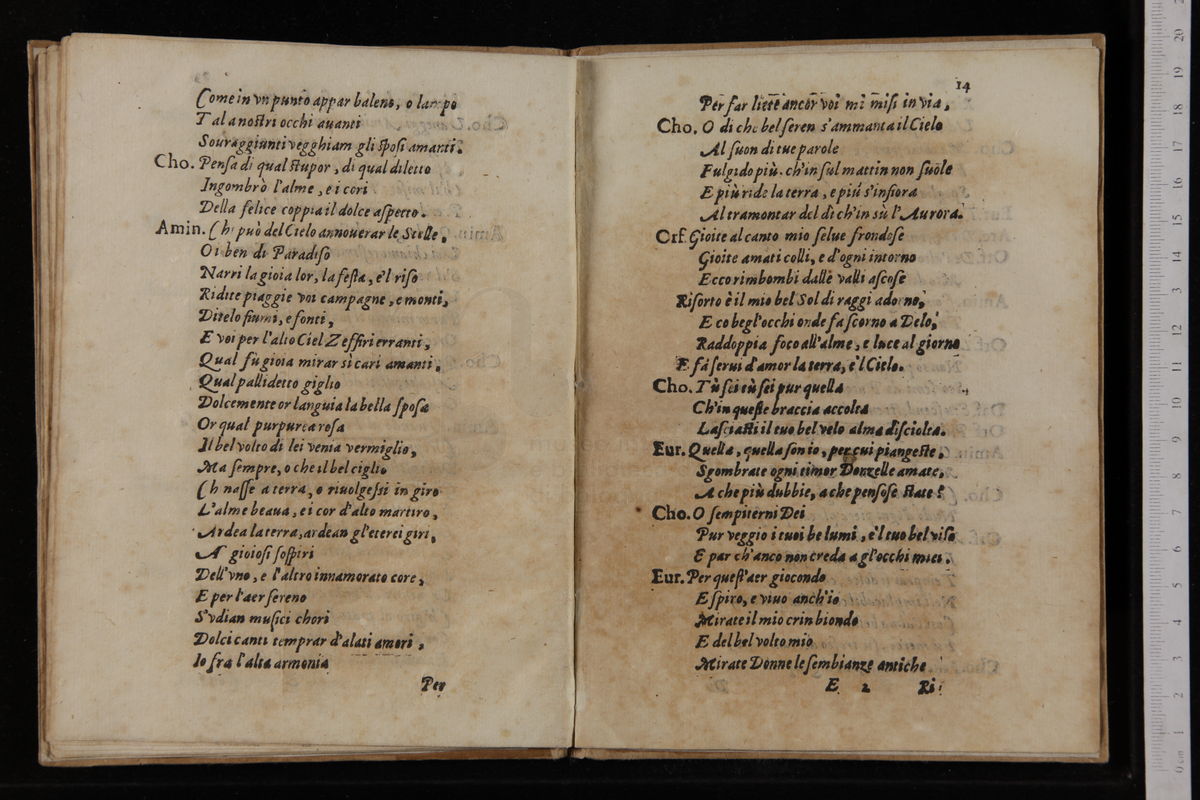 Come in vn punto appar baleno, o lampo
Tal a nostri occhi auanti
Souraggiunti vegghiam gli sposi amanti.
Cho. Pensa di qual stupor, di qual diletto
Ingombrò l'alme, e i cori
Della felice coppia il dolce aspetto.
Amin. Chi può del Cielo annouerar le Stelle,
O i ben di Paradiso
Narri la gioia lor, la festa, e'l riso
Ridite piaggie voi campagne, e monti,
Ditelo fiumi, e fonti,
E voi per l'alto Ciel Zeffiri erranti,
Qual fù gioia mirar sì cari amanti.
Qual pallidetto giglio
Dolcemente or languia la bella sposa
Or qual purpurea rosa
Il bel volto di lei venia vermiglio,
Ma sempre, o che il bel ciglio
Ch nasse a terra, o riuolgessi in giro
L'alme beaua, e i cor d'alto martiro,
Ardea la terra, ardean gl'eterei giri,
A' gioiosi sospiri
Dell'vno, e l'altro innamorato core,
E per l'aer sereno
S'vdian musici chori
Dolci canti temprar d'alati amori,
Io fra l'alta armonia
Per
14
Per far liete ancor voi mi misi in via,
Cho. O di che bel seren s'ammanta il Cielo
Al suon di tue parole
Fulgido più, ch'in sul mattin non suole
E più ride la terra, e più s'infiora
Al tramontar del dì ch'in sù l'Aurora.
Orf. Gioite al canto mio selue frondose
Gioite amati colli, e d'ogni intorno
Ecco rimbombi dalle valli ascose
Risorto è il mio bel Sol di raggi adorno,
E co begl'occhi onde fa scorno a Delo,
Raddoppia foco all'alme, e luce al giorno
E fà serui d'amor la terra, e'l Cielo.
Cho. Tù sei tù sei pur quella
Ch'in queste braccia accolta
Lasciasti il tuo bel velo alma disciolta.
Eur. Quella, quella son io, per cui piangeste,
Sgombrate ogni timor Donzelle amate,
A che più dubbie, a che pensose state?
Cho. O sempiterni Dei
Pur veggio i tuoi be lumi, e'l tuo bel viso
E par ch'anco non creda a gl'occhi miei.
Eur. Per quest'aer giocondo
E spiro, e viuo anch'io
Mirate il mio crin biondo
E del bel volto mio
Mirate Donne le sembianze antiche
E 2
Ri